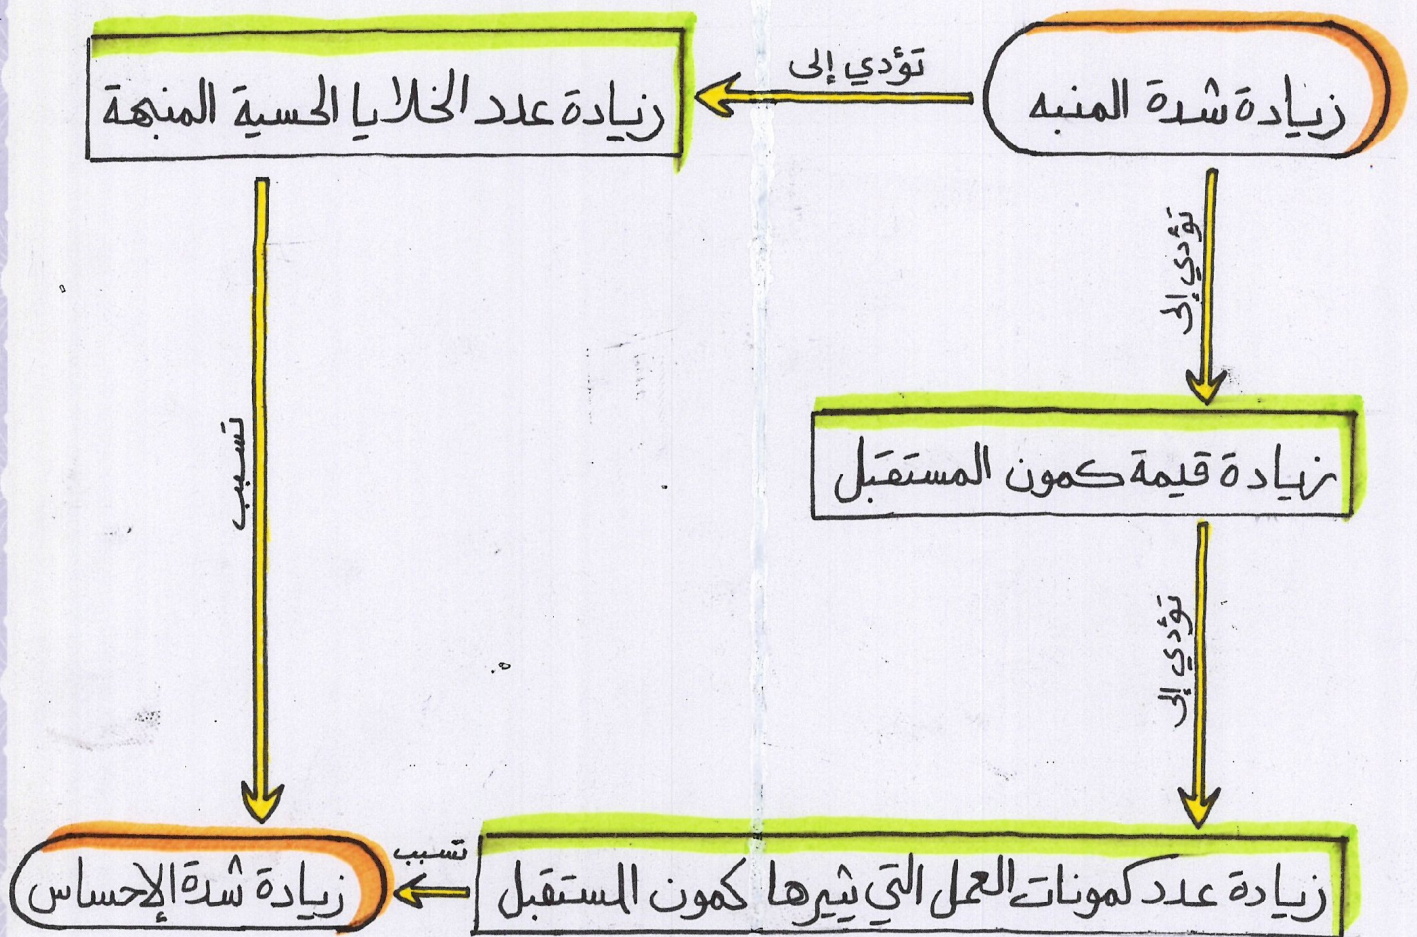 زيادة شدة المنبه
تؤدي إلى
زيادة عدد الخلايا الحسية المنبهة
تؤدي إلى
زيادة قيمة كمون المستقبل
تسبب
تؤدي إلى
زيادة عدد كمونات العمل التي يثيرها كمون المستقبل
تسبب
زيادة شدة الإحساس